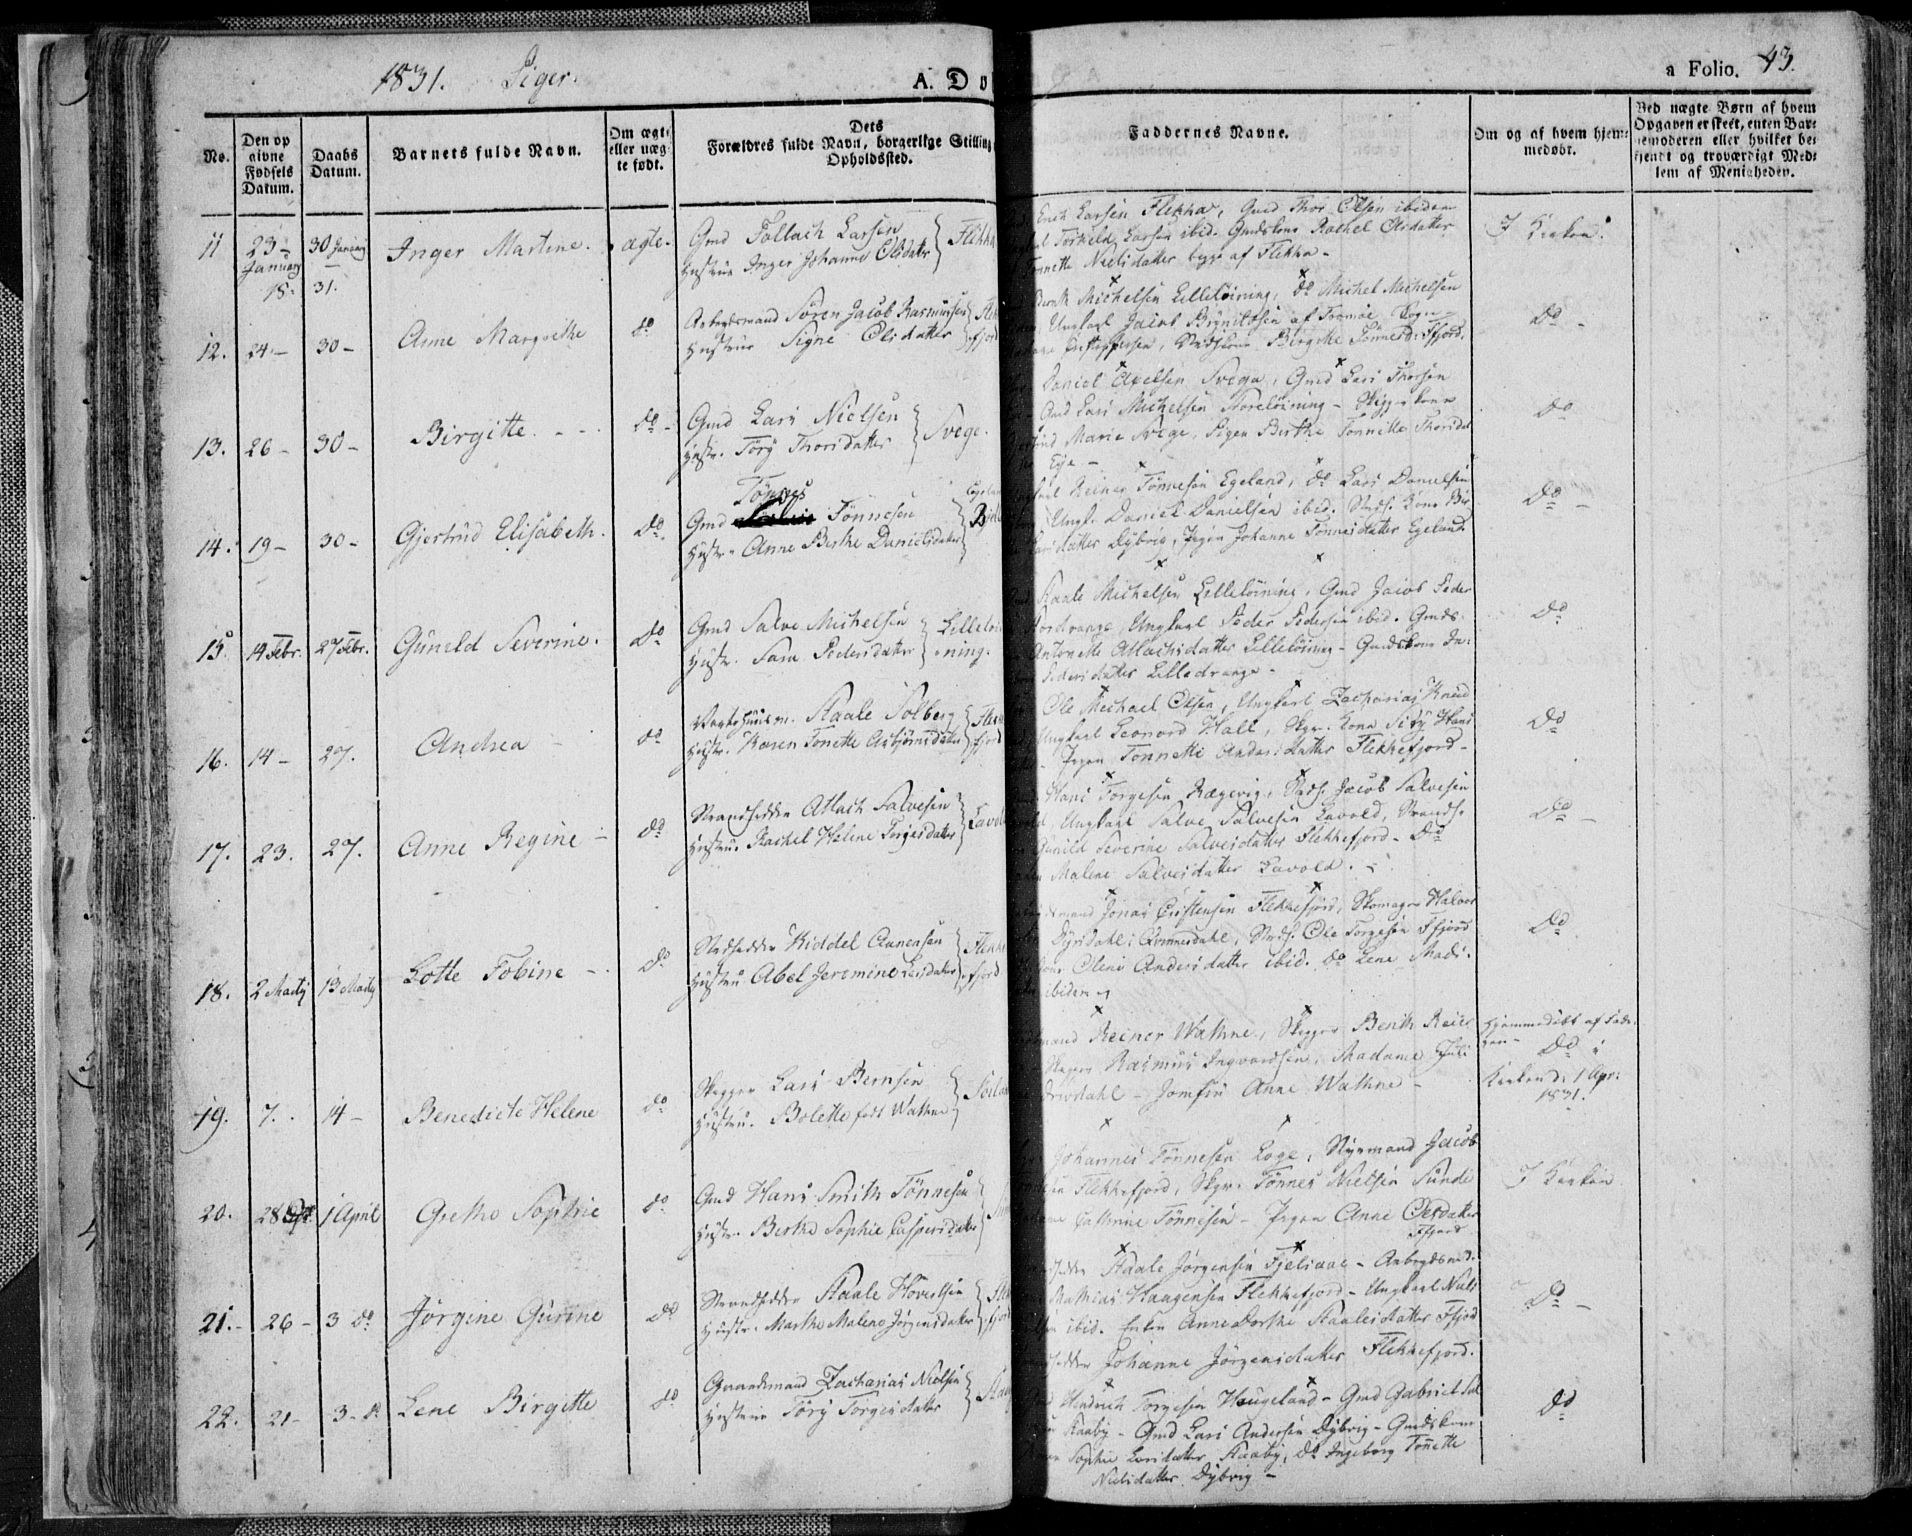 1831. Piger.
A. Dø
a Folio. 43.
No.
Den op
givne
Fødsels
Datum.
Daabs
Datum.
Barnets fulde Navn.
Om ægte
eller uæg-
te født.
Dets
Forældres fulde Navn, borgerlige Stilling
Opholdssted.
Faddernes Navne.
Om og af hvem hjem-
medøbt.
Ved uægte Børn af hvem
Opgaven er skeet, enten Bar-
nemoderen eller hvilket be-
kjendt og troværdigt Med-
lem af Menigheden.
11 23 January 18 31. 30 January Inger Martine. ægte.
Gmd Tallach Larsen
Hustrue Inger Johanne Olsdatter } Flikka
Erik Larsen Flikka, Gmd Thor Olsen ibidem
Torkeld Larsen ibid. Gmdskone Rachel Olsdatter
Tonnette Nielsdatter begge af Flikka -
I Kirken.
12. 24 - 30 - Anne Margrethe do
Arbeydsmand Søren Jacob Rasmusen
Hustrue Signe Olsdatter
Michelsen Lilleløining, do Michel Michelsen
Ungkarl Jacob Brynildsen af Tromøe Sogn
Birgitte Tønnesd: Ffjord.
do -
13. 26 - 30 - Birgitte. - - do -
Gmd Lars Nielsen
Hustr. Töry Thorsdatter } Svege.
Daniel Axelsen Svega, Gmd Lars Thorsen
Gmd Lars Michelsen Storeløining - Skipperkone
Marie Svege, Pigen Birthe Tonnette Thorsdat
Eye -
do
14. 19 - 30 - Gjertrud Elisabeth. do.
Tønnes
Gmd Tønnesen
Hustr. Anne Birthe Danielsdatter
Reiner Tønnesen Egeland, do Lars Danielsen
Ungk. Daniel Danielsen ibid. Strds. Kone Bir
datter Dybvig, Pigen Johanne Tønnesdatter Egeland.
do -
15. 14 Febr. 27 Febr. Guneld Severine. do
Gmd Salve Michelsen
Hustr. Sara Pedersdatter } Lilleløi-
ning.
Staale Michelsen Lilleløining, Gmd Jacob Peder
Ungkarl Peder Pedersen ibid. Gmds-
Antonette Atlachsdatter Lilleløining - Gmdskone In-
Pedersdatter Lilledrange -
do
16. 14 - 27. Andrea - do
Staale Solberg
Hustr. Karen Tonette Asbjørnsdatter
Ole Michael Olsen, Ungkarl Zacharias Knud
Ungkarl Leonord Hall, Skpr. Kone Sisy Hans
- Pigen Tonnette Andersdatter Flekkefjord -
do
17. 23. 27. Anne Regine - do
Strandsidder Atlach Salvesen
Hustru. Rachel Helene Torgersdatter } Lavold
Hans Torgesen Rægevig, Strds. Jacob Salvesen
Ungkarl Salve Salvesen Lavold, Strands.
Gunild Severine Salvesdatter Flekkefjord - do
Malene Salvesdatter Lavold. -
do -
18. 2 Martj 13 Martj Lotte Tobine - do
Stdsidder Kiddel Aanensen
Hustru Abel Jeremine Larsdatter } Flekke-
fjord
Jonas Christensen Flekkefjord, Skomager Halvor
Dyrsdahl: Qvinnesdahl, Strds. Ole Torgesen Ffjord
Oline Andersdatter ibid. do Lene Mads-
ibidem
do
19. 7. 14 - Benedicte Helene do
Skipper Lars Bernsen
Hustru. Bolette født Wathne
Reiner Wathne, Skipper Berith Reier
Skipper Rasmus Ingvardsen, Madame Juli
Drivdahl - Jomfru Anne Wathne -
Hjemmedøbt af Fade-
ren - do i
Kirken d: 1 Apr:
1831.
20. 28 1 April Grethe Sophie do
Gmd Hans Smith Tønnesen
Hustr. Berthe Sophie Caspersdatter
Johannes Tønnesen Loge, Styrmand Jacob
Flekkefjord, Skpr. Tønnes Nielsen Sunde
Cathrine Tønnesen - Pigen Anne Olesdatter
Ffjord
I Kirken.
21. - 26 - 3 do Jørgine Gurine do
Strandsidder Staale Hovertsen
Hustr. Marthe Malene Jørgensdatter
Staale Jørgensen Fjelsaae - Arbeydsmd.
Mathias Haagensen Flekkefjord - Ungkarl Niels
ibid. Enken Anne Dorthe Staalesdatter Ffjord
Johanne Jörgensdatter Flekkefjord.
do -
22. 21 - 3 - do Lene Birgitte do
Gaardmand Zacharias Nielsen
Hustrue Töry Torgersdatter
Hendrich Torgesen Haugeland - Gmd Gabriel Sal
Staaby - Gmd Lars Andersen Dybvig - Gmdskone
Sophie Larsdatter Staaby, do Ingeborg Tonnette
Nielsdatter Dybvig -
do